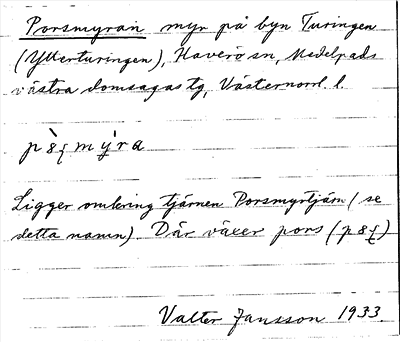 Porsmyran myr på byn Turingen
(Ytterturingen), Haverö sn, Medelpads
västra domsagas tg, Västernorrl. l.
Ligger omkring tjärnen Porsmyrtjärn (se
detta namn). Där växer pors
Valter Jansson 1933.